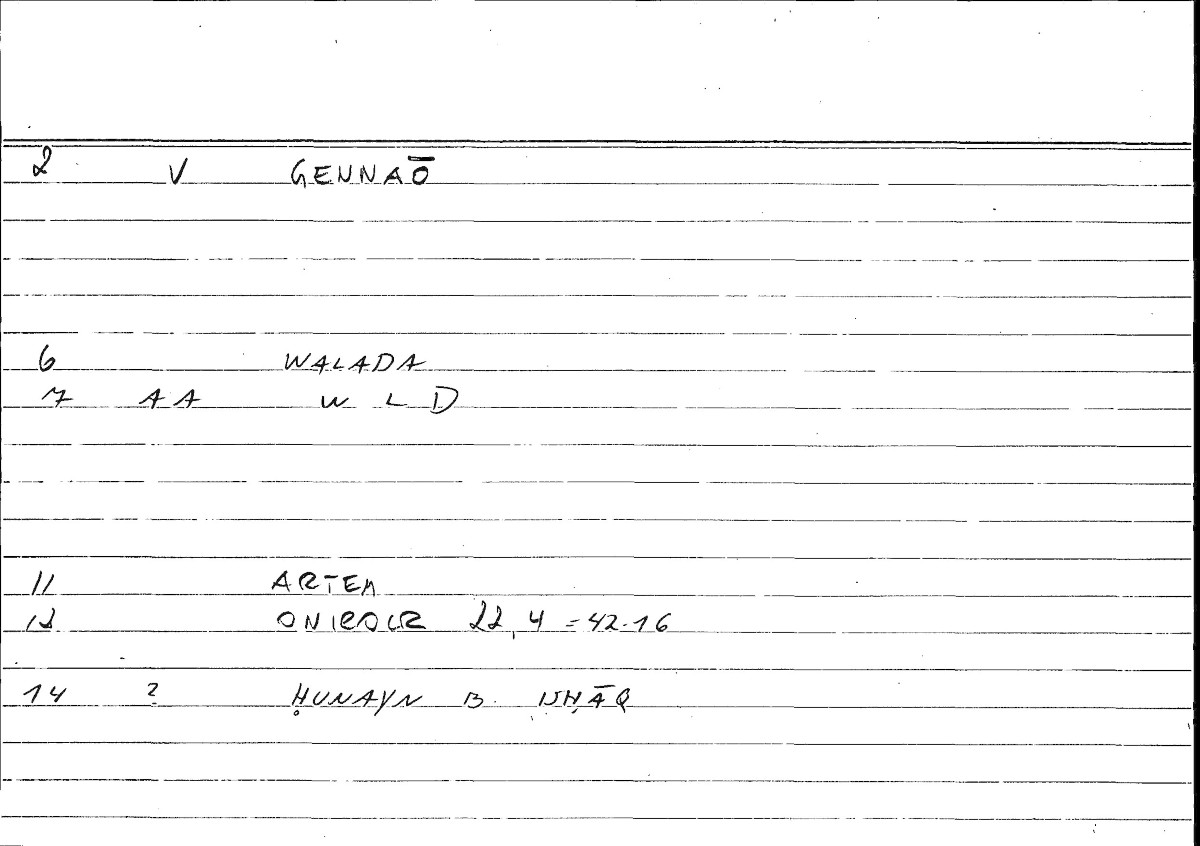 2 V GENNAŌ
6 WALADA
7 AA W L D
11 ARTEM
12 ONIROCR 22,4 = 42.16
14 ? ḤUNAYN B. ISḤĀQ